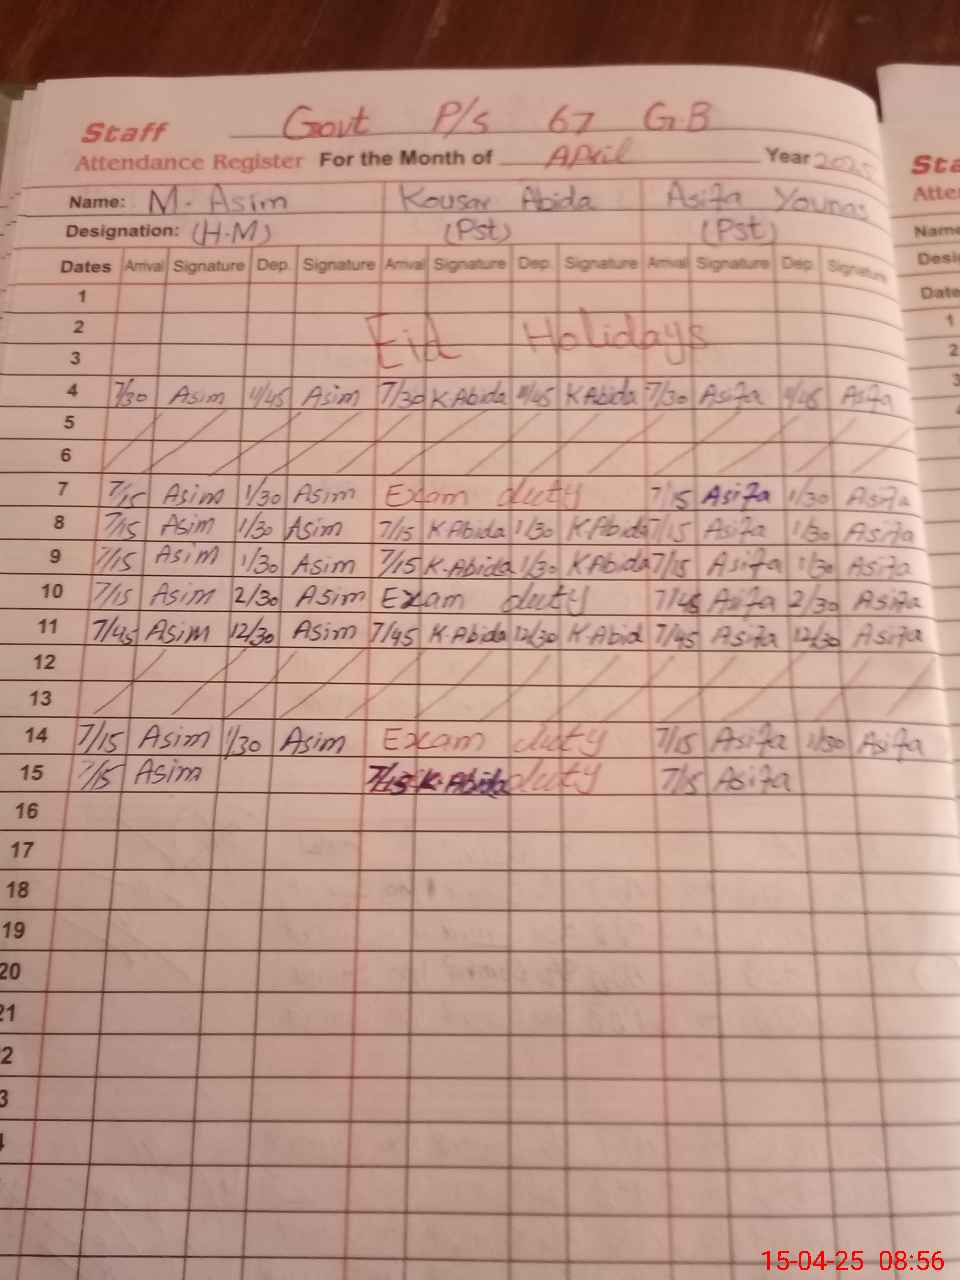 Govt P/S 67 G.B
Staff
Attendance Register For the Month of April Year 2025
Name: M. Asim Kousar Abida Asifa Younas
Designation: (H.M) (Pst) (Pst)
Dates Arrival Signature Dep. Signature Arrival Signature Dep. Signature Arrival Signature Dep. Signature
1
2 Eid Holidays
3
4 7/30 Asim 11/45 Asim 7/30 K Abida 11/45 K Abida 7/30 Asifa 11/45 Asifa
5
6
7 7/15 Asim 1/30 Asim Exam duty 7/15 Asifa 1/30 Asifa
8 7/15 Asim 1/30 Asim 7/15 K Abida 1/30 K Abida 7/15 Asifa 1/30 Asifa
9 7/15 Asim 1/30 Asim 7/15 K.Abida 1/30 K Abida 7/15 Asifa 1/30 Asifa
10 7/15 Asim 2/30 Asim Exam duty 7/45 Asifa 2/30 Asifa
11 7/45 Asim 12/30 Asim 7/45 K.Abida 12/30 K Abid 7/45 Asifa 12/30 Asifa
12
13
14 7/15 Asim 1/30 Asim Exam duty 7/15 Asifa Asifa
15 7/15 Asim K.Abida duty 7/15 Asifa
16
17
18
19
20
21
2
3
Sta
Atte
Name
Desi
Date
1
2
3
15-04-25 08:56